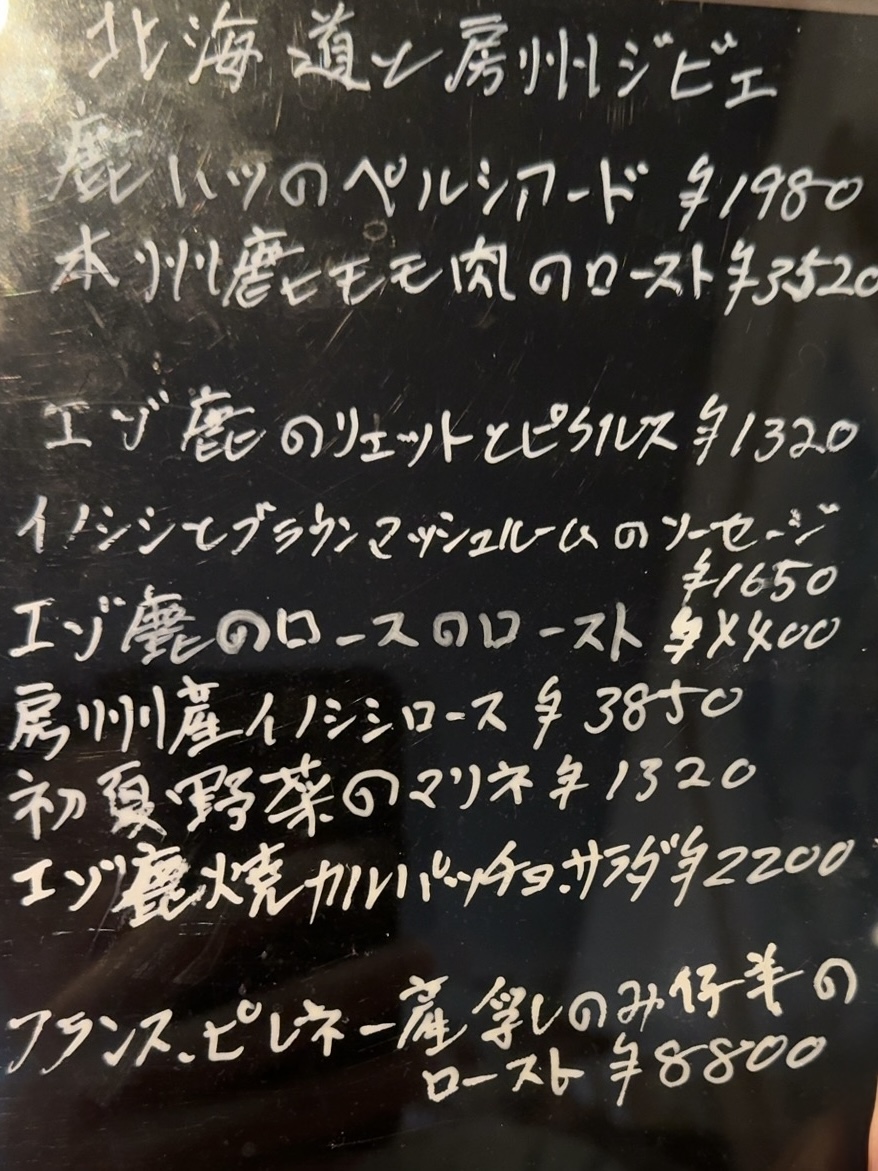 北海道と房州ジビエ
鹿ハツのペルシアード ¥1980
本州鹿ヒモモ肉のロースト¥3520
エゾ鹿のリエットとピクルス ¥1320
イノシシとブラウンマッシュルームのソーセージ
¥1650
エゾ鹿のロースのロースト ¥4400
房州産イノシシロース ¥3850
初夏野菜のマリネ ¥1320
エゾ鹿焼カルパッチョ.サラダ¥2200
フランス.ピレネー産乳のみ仔羊の
ロースト ¥8800